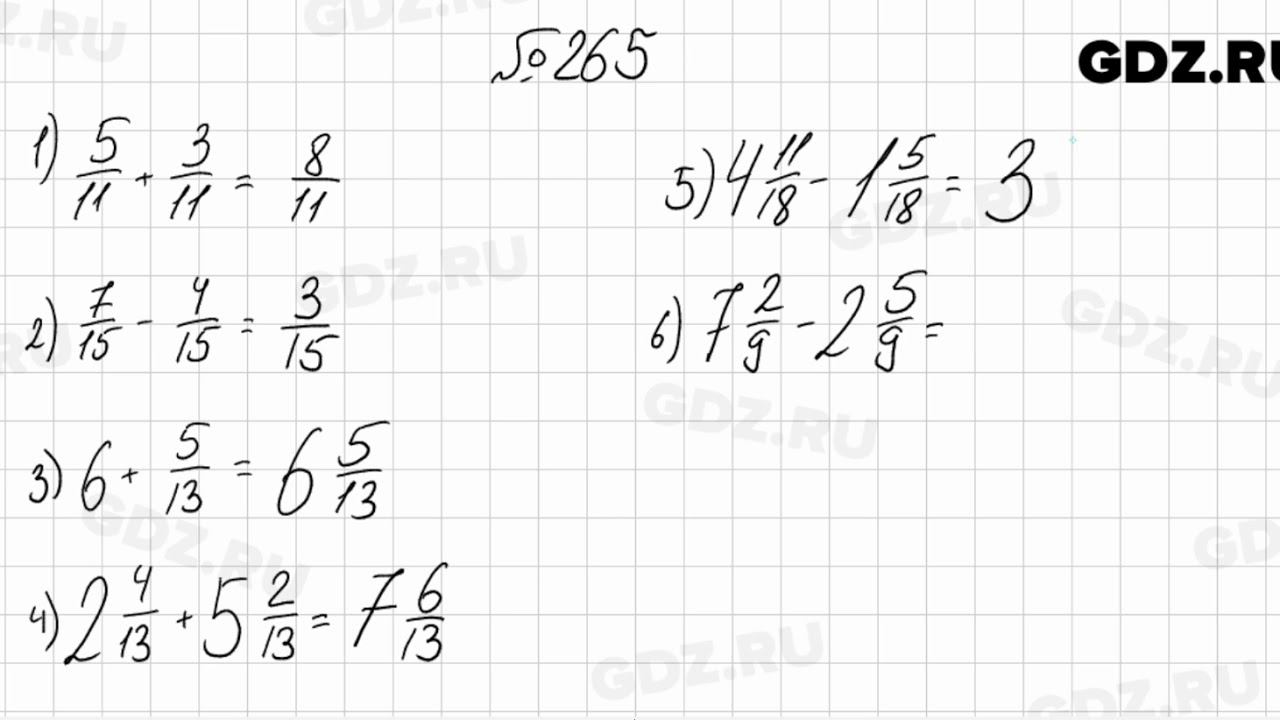 №265
GDZ.RU
1) 5/11 + 3/11 = 8/11
2) 7/15 - 4/15 = 3/15
3) 6 + 5/13 = 6 5/13
4) 2 4/13 + 5 2/13 = 7 6/13
5) 4 11/18 - 1 5/18 = 3
6) 7 2/9 - 2 5/9 =